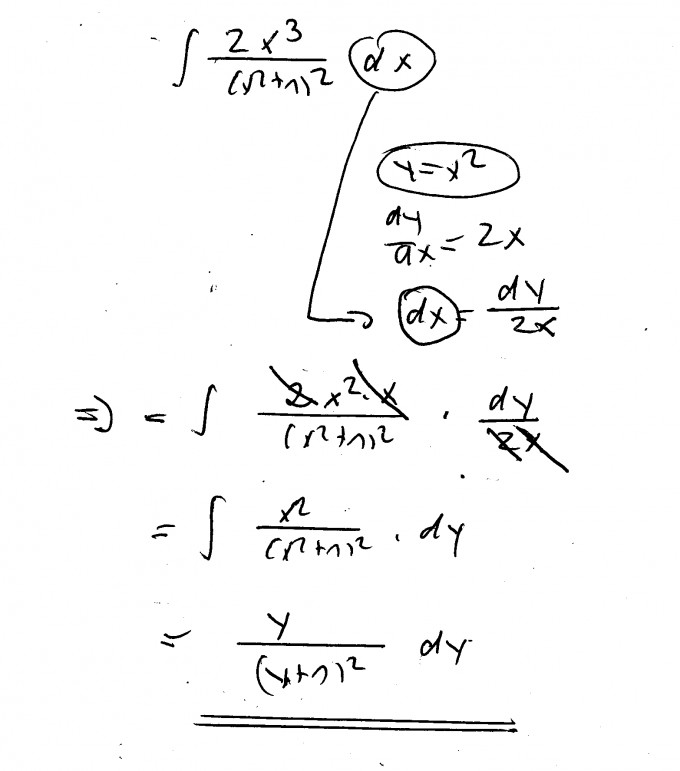 ∫ 2x³/(x²+1)² dx
y=x²
dy/dx = 2x
dx = dy/2x
=> = ∫ 2x²·x/(x²+1)² · dy/2x
= ∫ x²/(x²+1)² · dy
= y/(y+1)² dy